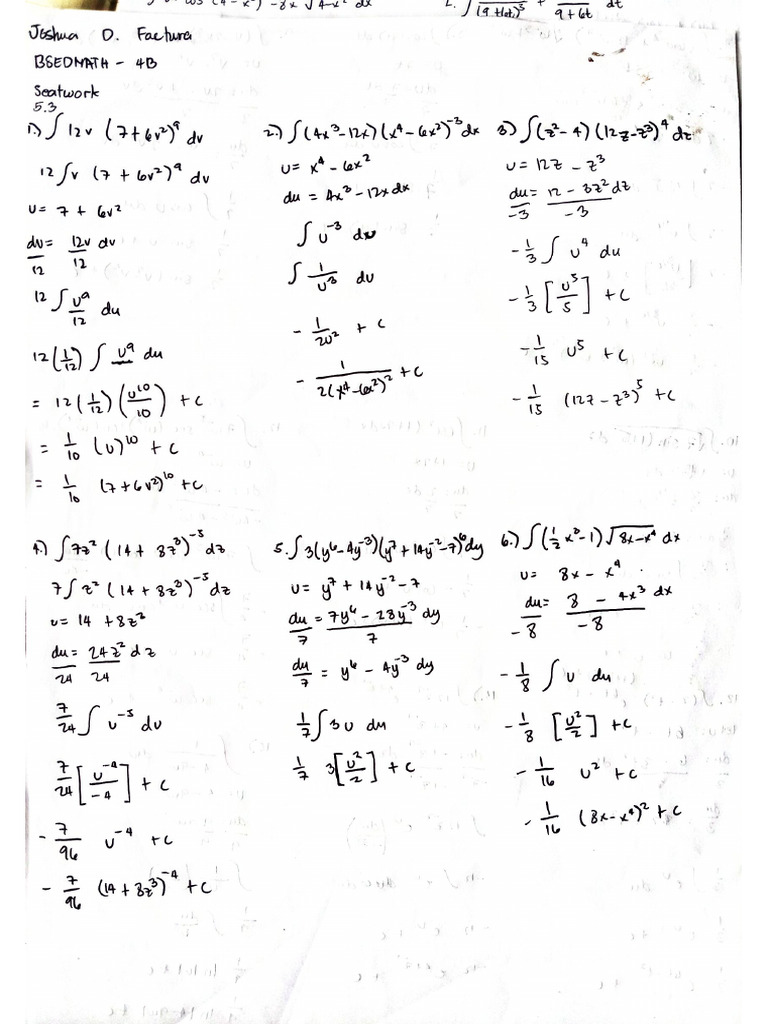 ∫ u cos (4-x²) -8x √4-x² dx
2. ∫ 1/(9+6t)⁵ + 1/9+6t dt
Joshua D. Factura
BSEDMATH - 4B
Seatwork
5.3
1.) ∫ 12v (7+6v²)⁹ dv
12 ∫ v (7 + 6v²)⁹ dv
u = 7 + 6v²
du/12 = 12v dv/12
12 ∫ u⁹/12 du
12 (1/12) ∫ u⁹ du
= 12 (1/12) (u¹⁰/10) + c
= 1/10 (u)¹⁰ + c
= 1/10 (7+6v²)¹⁰ + c
2.) ∫ (4x³-12x) (x⁴-6x²)⁻³ dx
u = x⁴ - 6x²
du = 4x³ - 12x dx
∫ u⁻³ du
∫ 1/u³ du
- 1/2u² + c
- 1/2(x⁴-6x²)² + c
3) ∫ (z²-4) (12z-z³)⁴ dz
u = 12z - z³
du/-3 = 12 - 3z² dz/-3
-1/3 ∫ u⁴ du
-1/3 [u⁵/5] + c
-1/15 u⁵ + c
-1/15 (12z - z³)⁵ + c
4.) ∫ 7z² (14 + 8z³)⁻⁵ dz
7 ∫ z² (14 + 8z³)⁻⁵ dz
u = 14 + 8z²
du/24 = 24z² dz/24
7/24 ∫ u⁻⁵ du
7/24 [u⁻⁴/-4] + c
- 7/96 u⁻⁴ + c
- 7/96 (14 + 8z³)⁻⁴ + c
5. ∫ 3(y⁶-4y⁻³)(y⁷+14y⁻²-7)⁶ dy
u = y⁷ + 14y⁻² - 7
du/7 = 7y⁶ - 28y⁻³ dy/7
du/7 = y⁶ - 4y⁻³ dy
1/7 ∫ 3u du
1/7 3[u²/2] + c
6.) ∫ (1/2 x³-1) √8x-x⁴ dx
u = 8x - x⁴
du/-8 = 8 - 4x³ dx/-8
-1/8 ∫ u du
-1/8 [u²/2] + c
-1/16 u² + c
-1/16 (8x-x⁴)² + c